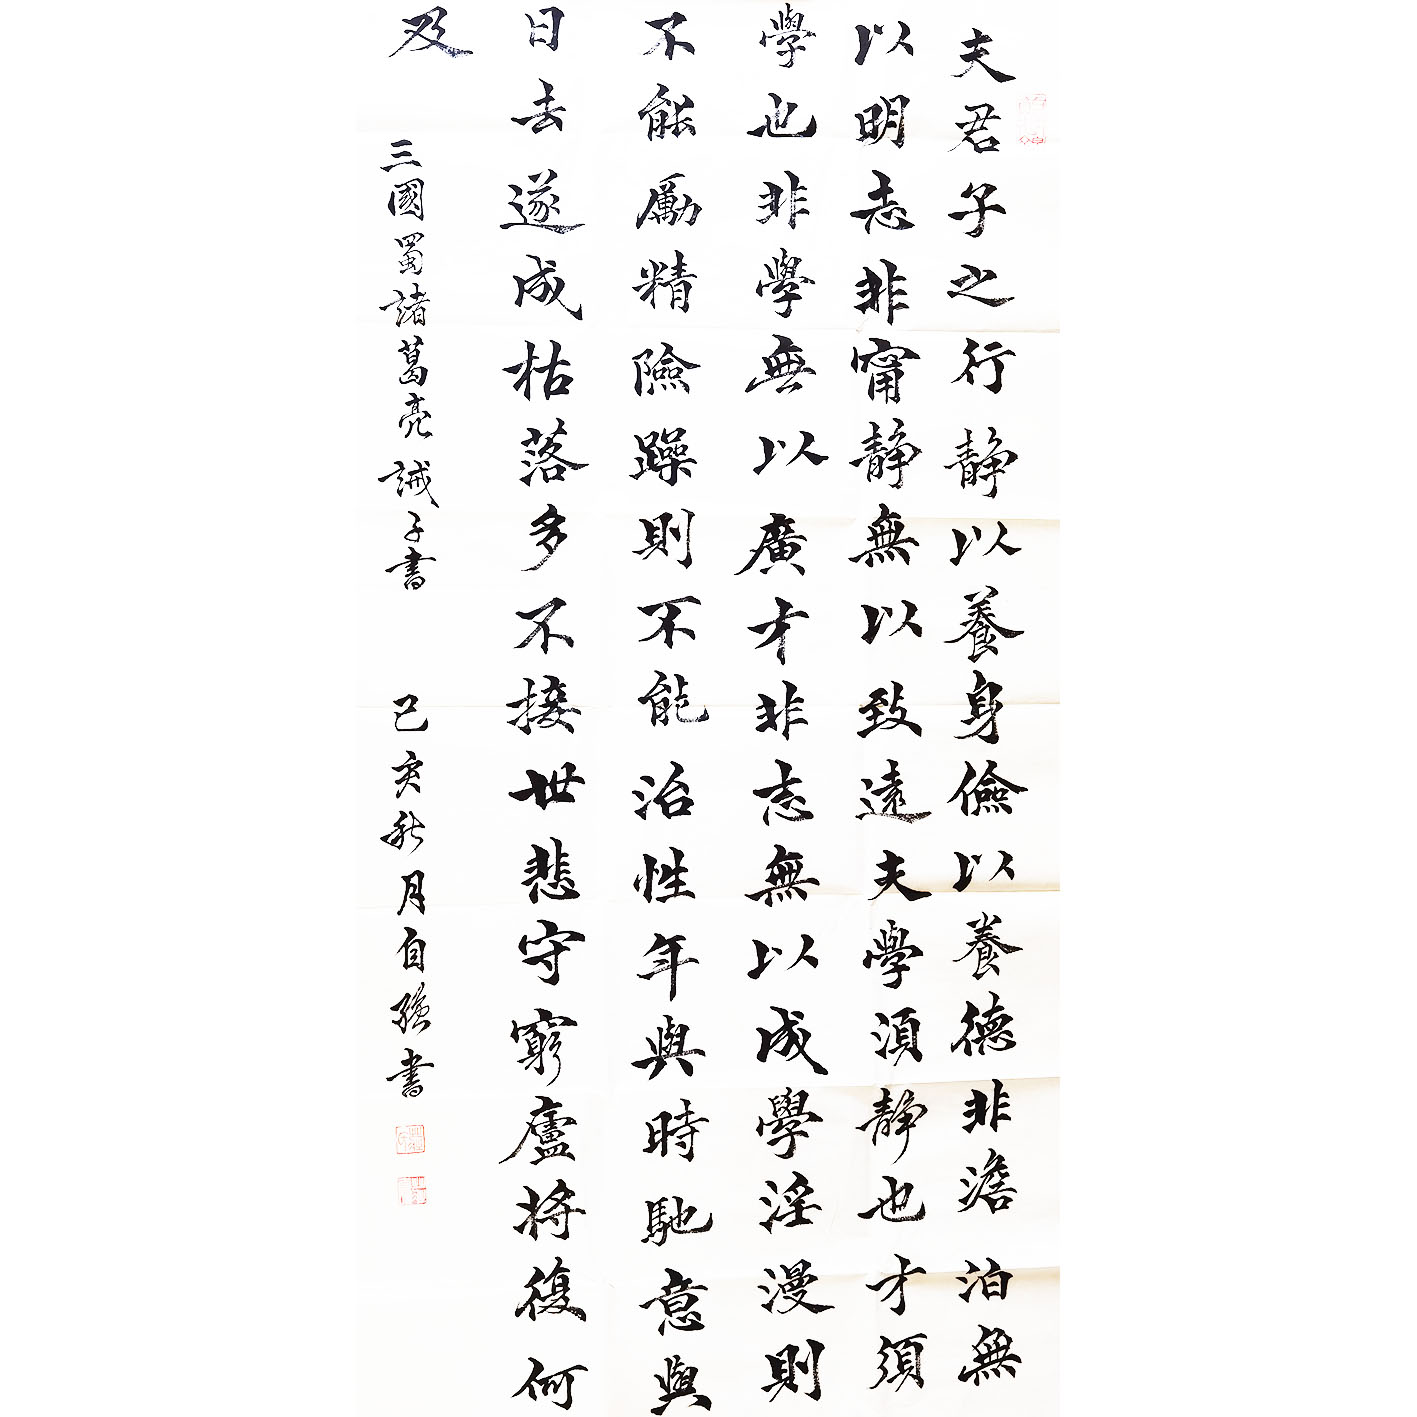 夫君子之行静以養身儉以養德非澹泊無
以明志非甯静無以致遠夫學須静也才須
學也非學無以廣才非志無以成學淫漫則
不能勵精險躁則不能治性年與時馳意與
日去遂成枯落多不接世悲守窮廬将復何
及
三國蜀諸葛亮誡子書
己亥秋月自強書